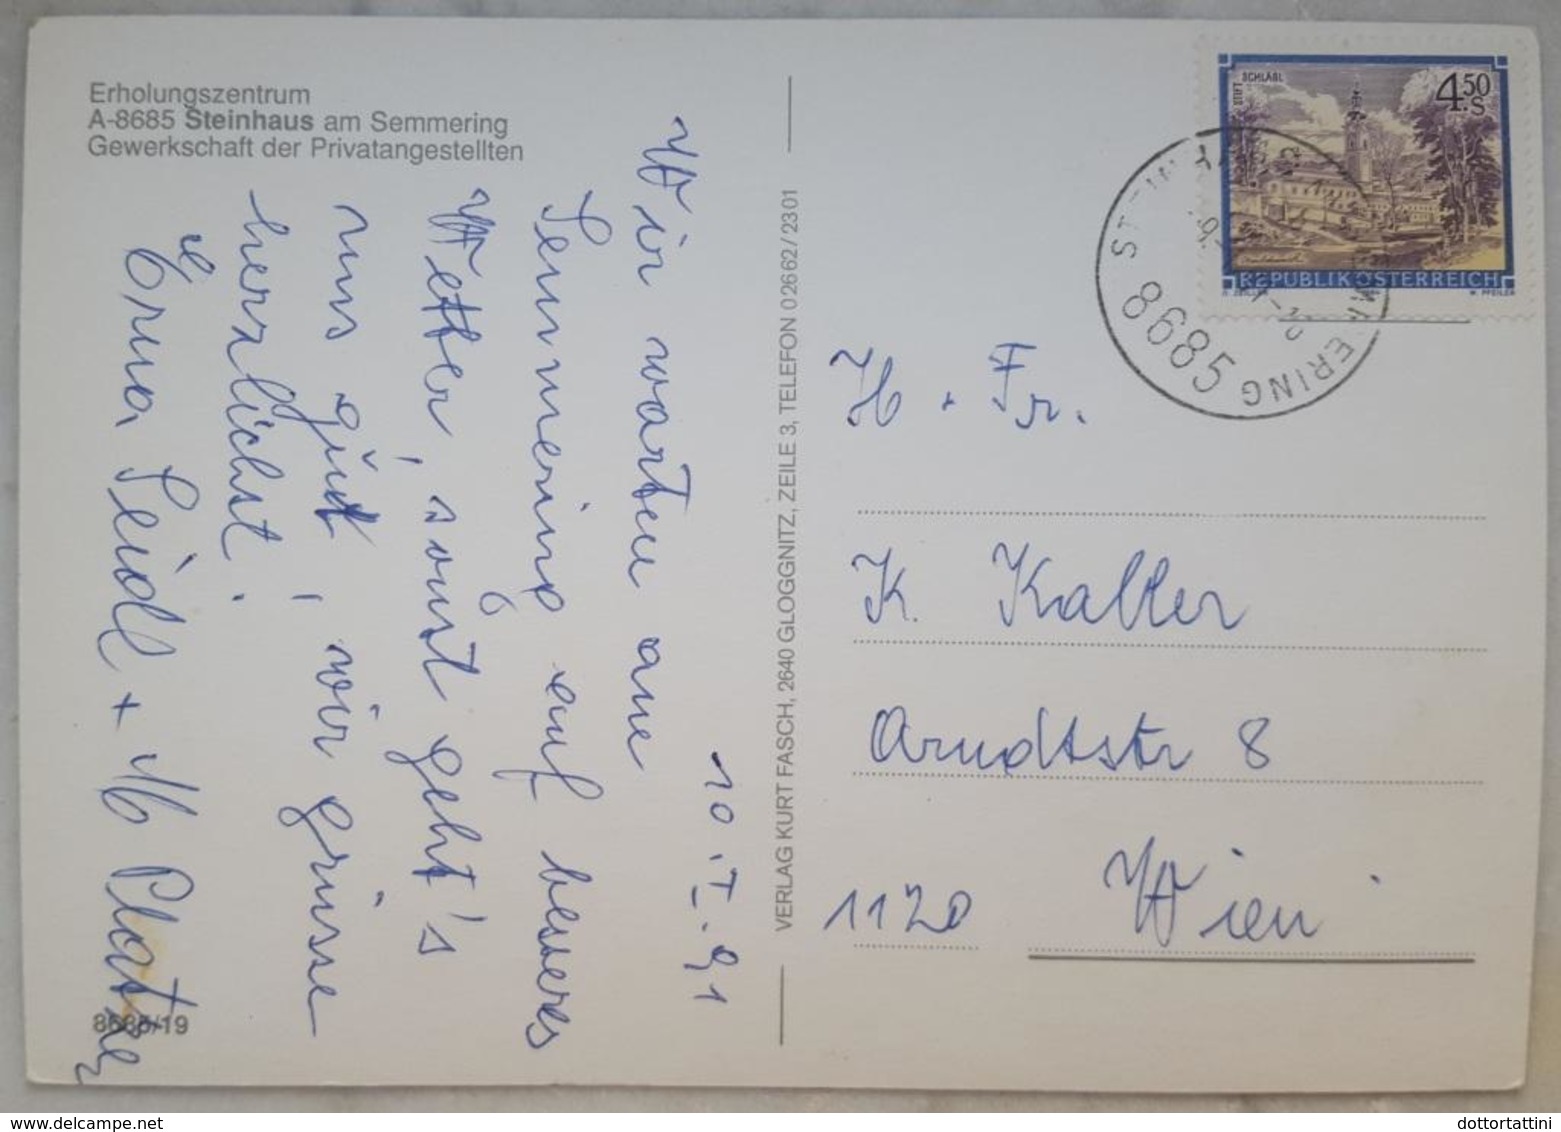 Erholungszentrum
A-8685 Steinhaus am Semmering
Gewerkschaft der Privatangestellten
10.I.91
Wir warten am
Semmering auf besseres
Wetter, sonst geht's
uns gut, wir grüsse
herzlichst.
Erna Seidl +
8685/19
VERLAG KURT FASCH, 2640 GLOGGNITZ, ZEILE 3, TELEFON 02662/2301
STIFT SCHLÄGL
4.50 S
REPUBLIK ÖSTERREICH
W. PFEILER
8685
H. Fr.
K. Kaller
Arndtstr 8
1120 Wien
dottortattini